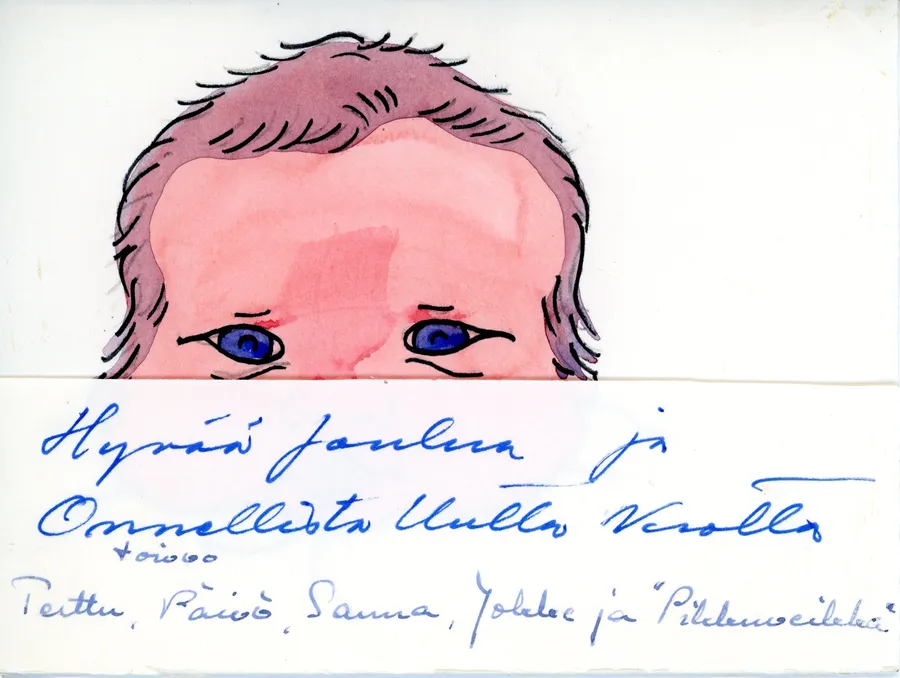 Hyvää Joulua ja
Onnellista Uutta Vuotta
toivoo
Terttu, Päivö, Sanna, Jokke ja "Pikkuveikka"